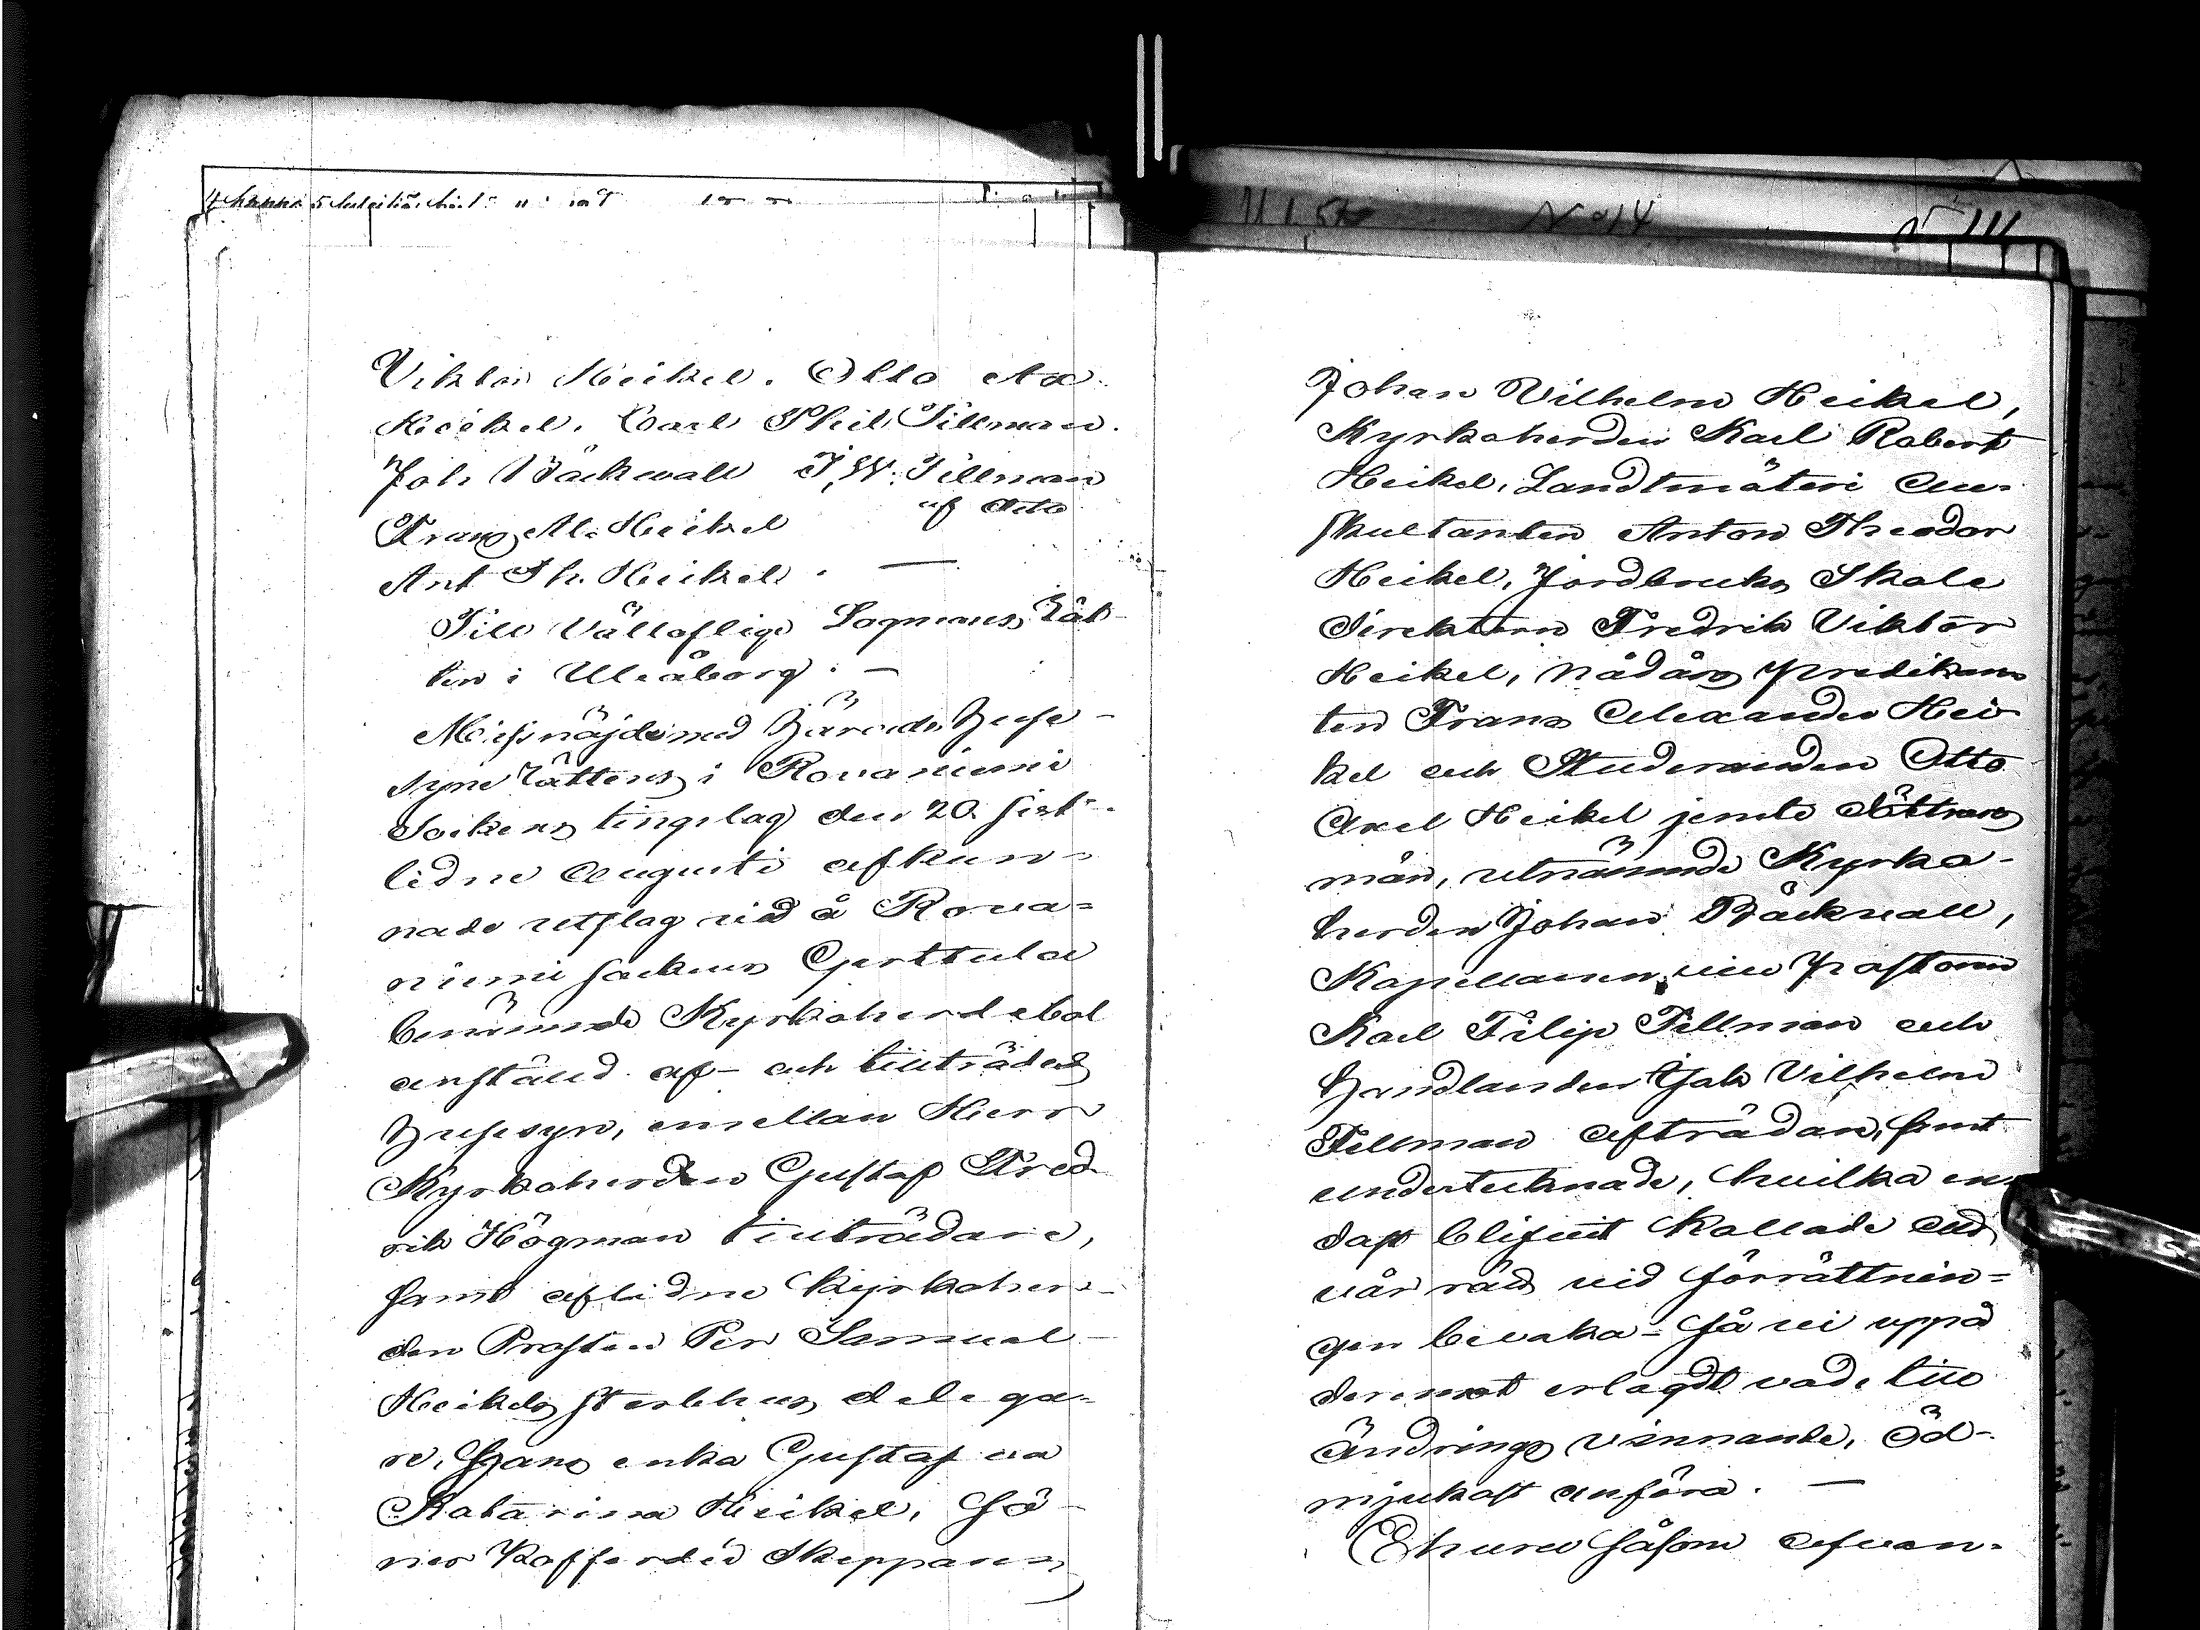 Viktor Heikel. Otto Ax.
Heikel. Carl Phil Tillman.
Joh Bäckwall J. W. Tillman
Frans Al. Heikel
Ant Th. Heikel. —
Till Vällofliga Lagmans Rät-
ten i Uleåborg. —
Missnöjde med Härads Huse-
syne Rättens i Rovaniemi
Sockens tingslag den 20 sist-
lidne Augusti afkun-
nade utslag vid å Rova=
niemi sockens Gerttula
benämnde Kyrkoherdebol
anstäld af- och tillträdes
Husesyn, emellan Herr
Kyrkoherden Gustaf Fred-
rik Högman tillträdare,
samt aflidne Kyrkoher-
den Prosten Per Samuel
Heikels sterbhus delega-
re, Hans enka Gustafva
Katarina Heikel, Sö-
ner Kofferdi Skepparen
N 14
Johan Vilhelm Heikel,
Kyrkoherden Karl Robert
Heikel, Landtmäteri Au-
skultanten Anton Theodor
Heikel, Jordbruks Skole
Direktorn Fredrik Viktor
Heikel, Nådårs predikan
ten Frans Alexander Hei-
kel och Studeranden Otto
Axel Heikel jemte
män, utnämnde Kyrko-
herden Johan Bäckvall,
Kapellanen vice Pastorn
Karl Filip Tillman och
Handlanden Jak Vilhelm
Tillman afträdare, samt
undertecknade, hvilka en-
dast blifvit kallade att
vår rätt vid förrättnin=
gen bevaka - få vi uppå
deremot erlagdt vad, till
ändrings vinnande, öd-
mjukast anföra. —
Ehuru såsom afvan-